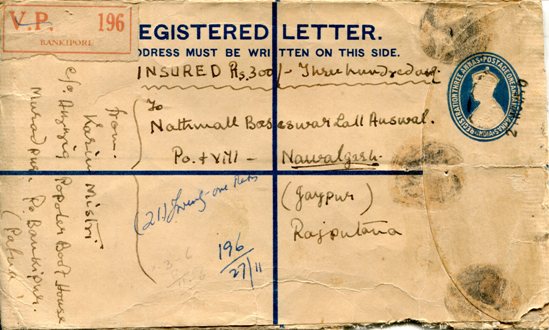 V.P. 196
BANKIPORE
REGISTERED LETTER.
ADDRESS MUST BE WRITTEN ON THIS SIDE.
INSURED Rs. 300/- Three hundred only
To
Nathmall Baseswar Lall Answal.
Po. & Vill - Nawalgarh.
(Jaypur)
Rajputana
(21) Twenty-one
196
27/11
from.
Karim Mistri
c/o Popular Boot House
Muradpur. Po. Bankipur.
(Patna)
REGISTRATION THREE ANNAS
POSTAGE